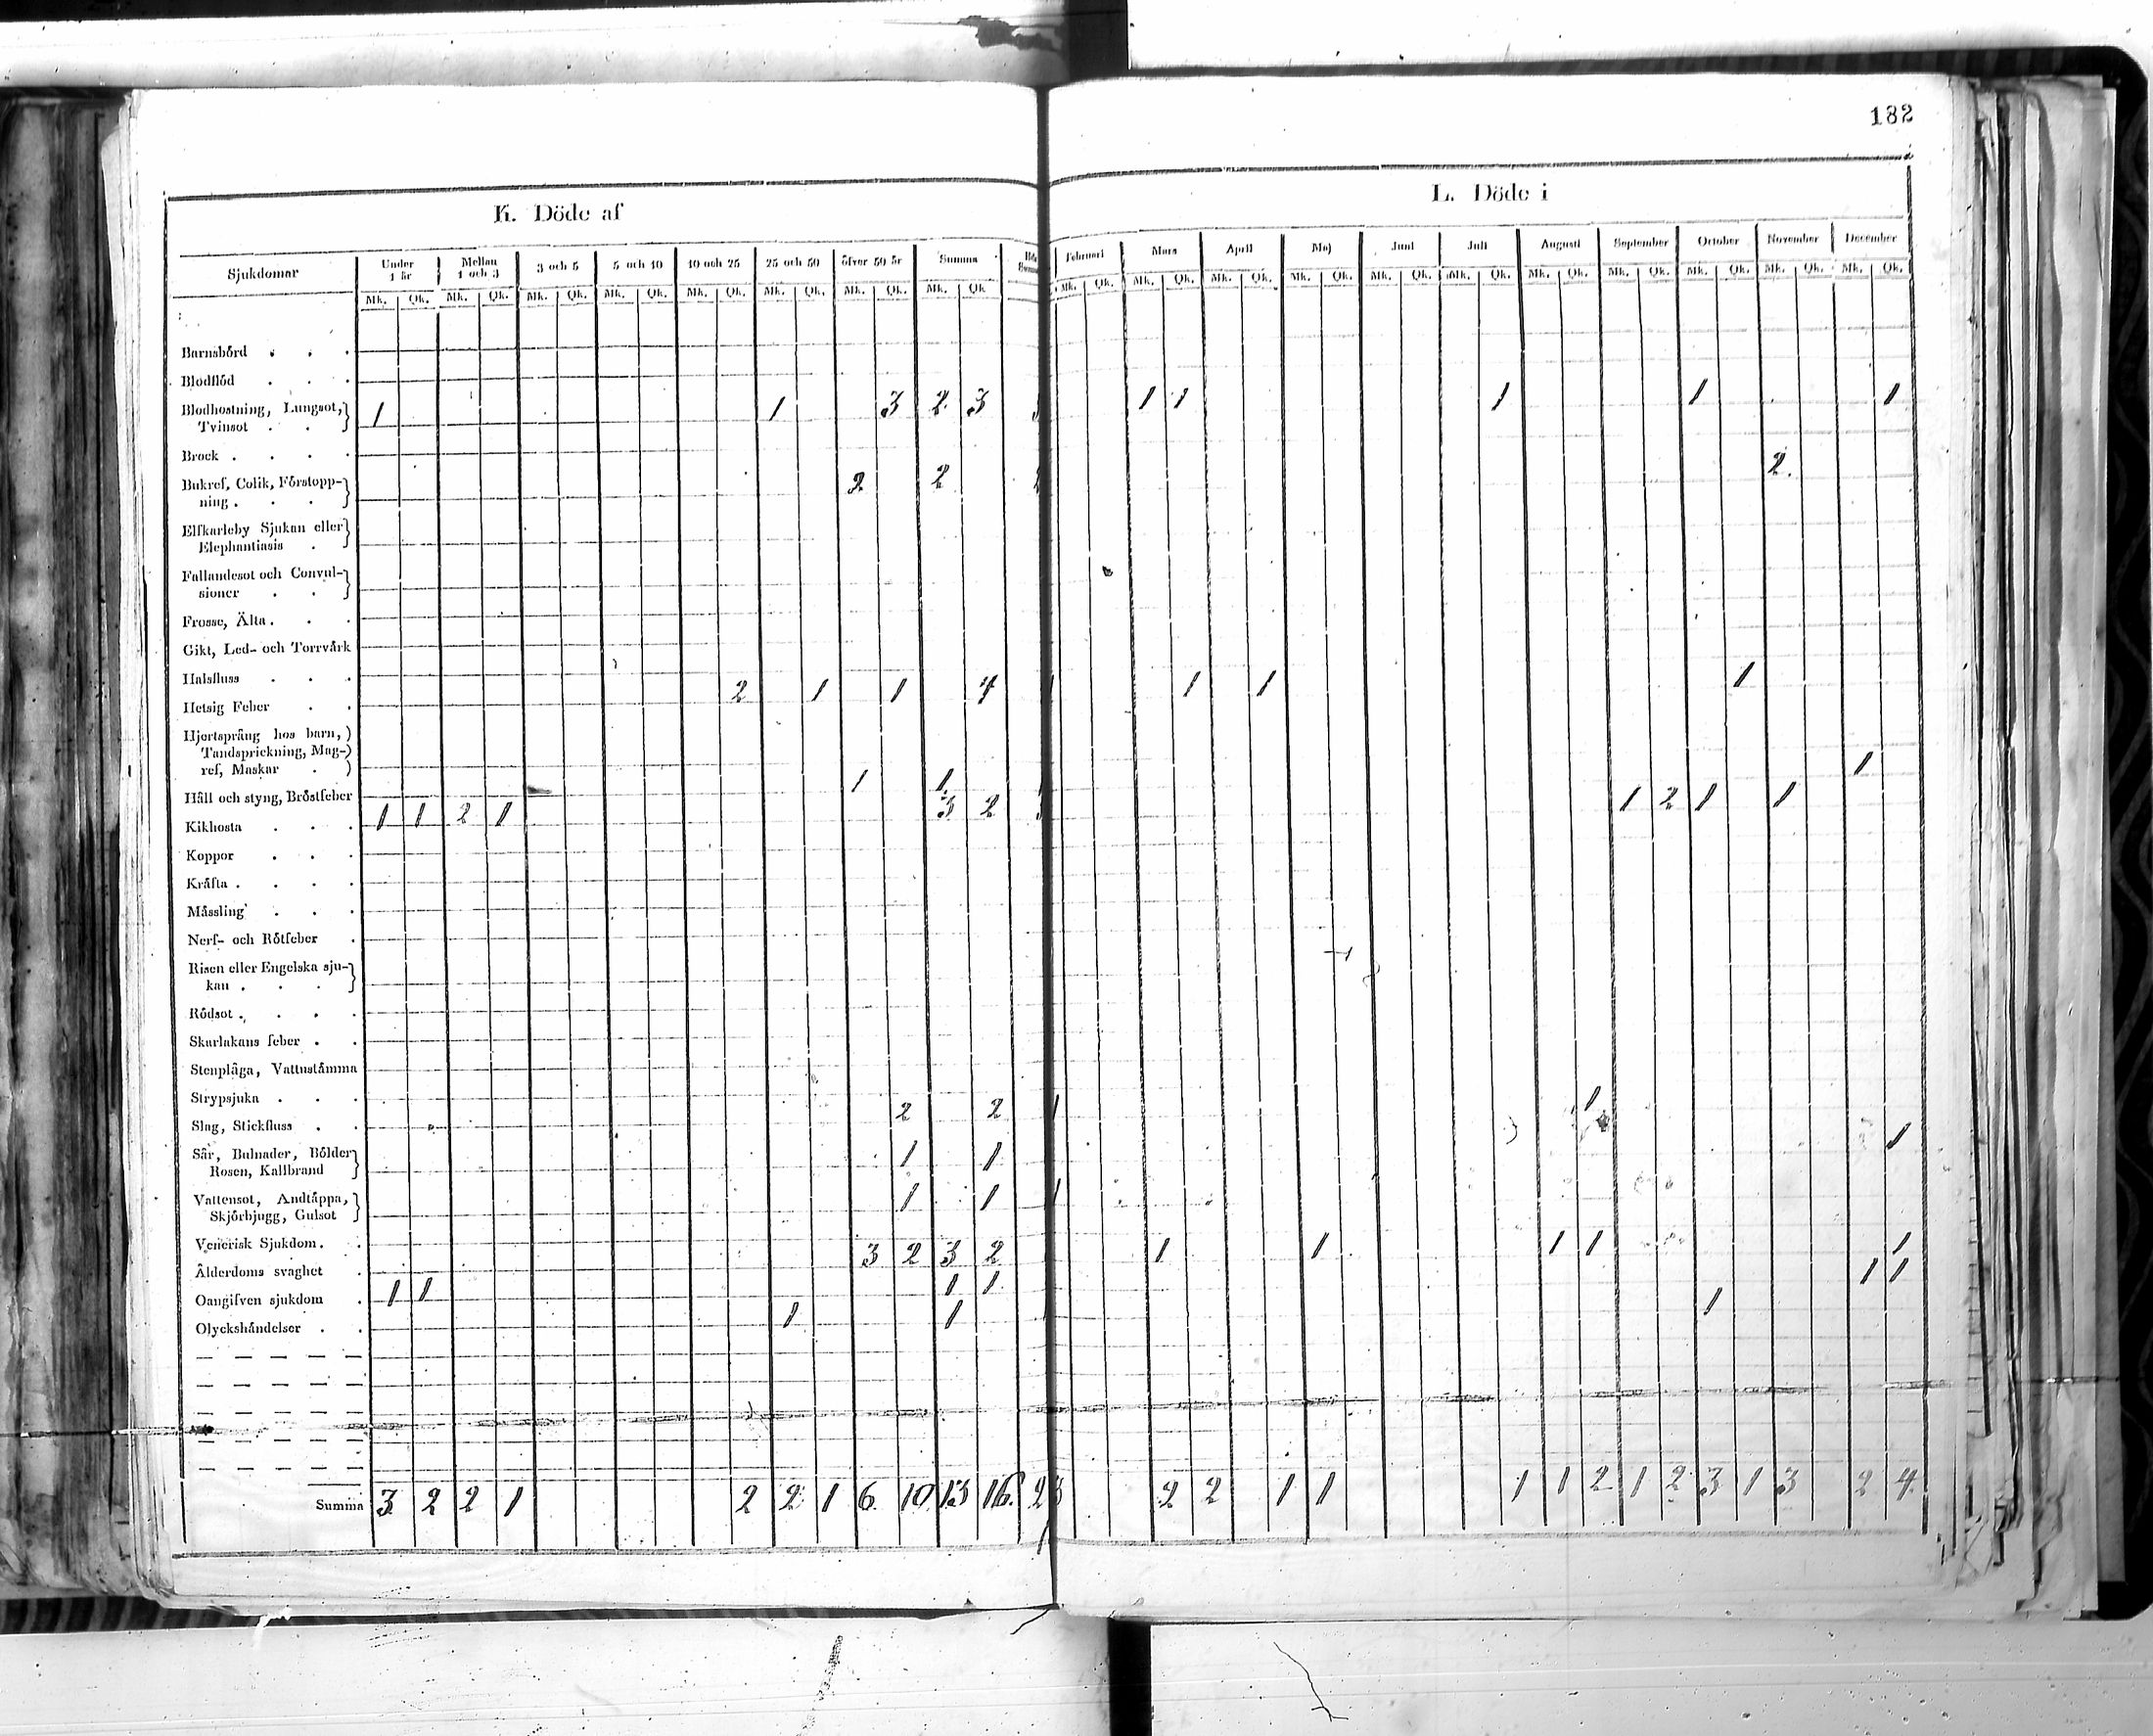 182
K. Döde af
L. Döde i
Sjukdomar Under 1 år Mellan 1 och 3 3 och 5 5 och 10 10 och 25 25 och 50 öfver 50 år Summa
Februari Mars April Maj Juni Juli Augusti September October November December
Mk. Qk. Mk. Qk. Mk. Qk. Mk. Qk. Mk. Qk. Mk. Qk. Mk. Qk. Mk. Qk
Mk. Qk. Mk. Qk. Mk. Qk. Mk. Qk. Mk. Qk. Mk. Qk. Mk. Qk. Mk. Qk. Mk. Qk. Mk. Qk. Mk. Qk.
Barnsbörd . . .
Blodflöd . . .
Blodhostning, Lungsot, 1 1 3 2 3 1 1 1 1 1
Tvinsot . .
Brock . . . .
Bukref, Colik, Förstopp- 2 2 2.
ning . . .
Elfkarleby Sjukan eller
Elephantiasis .
Fallandesot och Convul-
sioner . .
Frosse, Älta . . .
Gikt, Led- och Torrvärk
Halsfluss . . .
Hetsig Feber . . 2 1 1 4 1 1 1
Hjertsprång hos barn,
Tandsprickning, Mag-
ref, Maskar .
Håll och styng, Bröstfeber 1 1 1
Kikhosta . . . 1 1 2 1 3 2 1 2 1 1
Koppor . . .
Kräfta . . . .
Mässling . . .
Nerf- och Rötfeber .
Risen eller Engelska sju-
kan . . .
Rödsot . . . .
Skarlakans feber . .
Stenplåga, Vattustämma
Strypsjuka . . .
Slag, Stickfluss . . 2 2 1 1
Sår, Bulnader, Bölder 1 1 1
Rosen, Kallbrand
Vattensot, Andtäppa, 1 1 1
Skjörbjugg, Gulsot
Venerisk Sjukdom . .
Ålderdoms svaghet . 3 2 3 2 1 1 1 1 1
Oangifven sjukdom . 1 1 1 1 1 1
Olyckshändelser . . 1 1 1
Summa 3 2 2 1 2 2 1 6 10 13 16 2 2 1 1 1 1 2 1 2 3 1 3 2 4